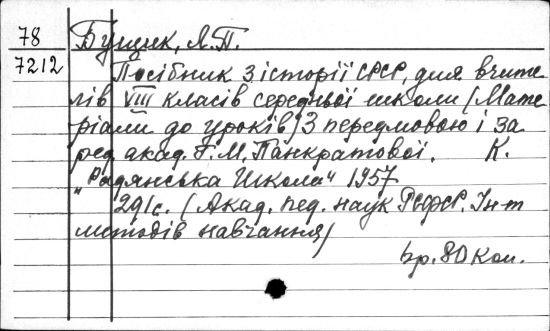 78 Бущик, Л.П.
7212 Посібник з історії СРСР, для вчите
лів VIII класів середньої школи (Мате
ріали до уроків) З передмовою і за
ред. акад. Г. М. Панкратової. К.
"Радянська Школа" 1957
291с. (Акад. пед. наук РРФСР. Інт
методів навчання)
4р. 80 коп.